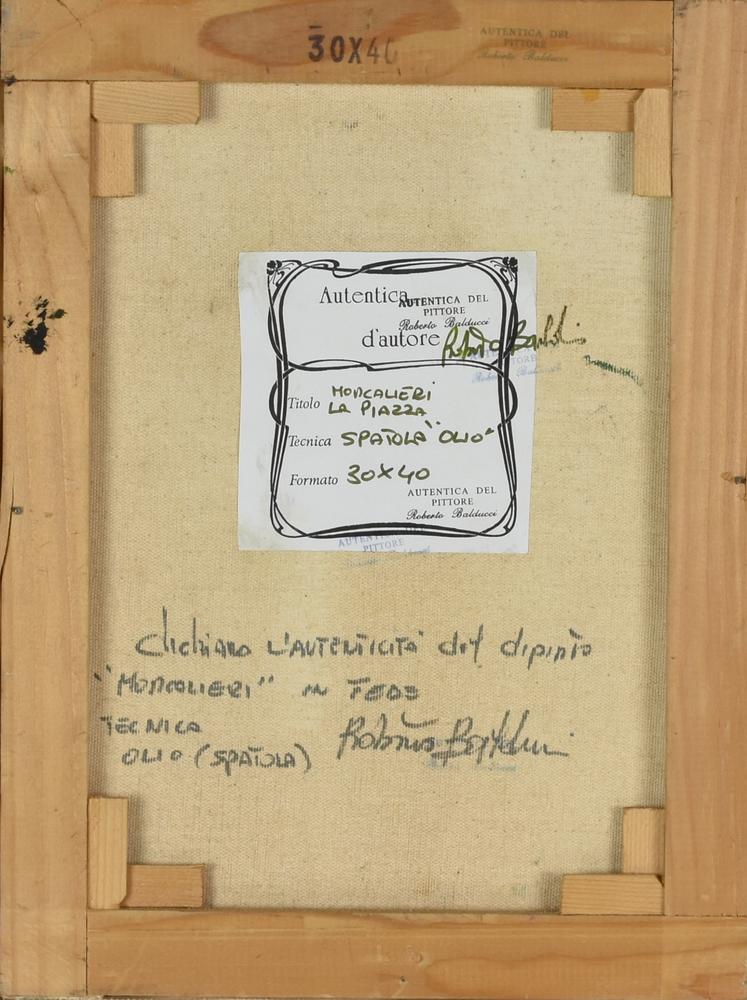 30X40
AUTENTICA DEL
PITTORE
Roberto Balducci
Autentica
AUTENTICA DEL
PITTORE
Roberto Balducci
d'autore
Titolo MONCALIERI
LA PIAZZA
Tecnica SPATOLA "OLIO"
Formato 30X40
AUTENTICA DEL
PITTORE
Roberto Balducci
AUTENTICA DEL
PITTORE
dichiaro L'AUTENTICITA' del dipinto
"MONCALIERI" IN FEDE
TECNICA
OLIO (SPATOLA)